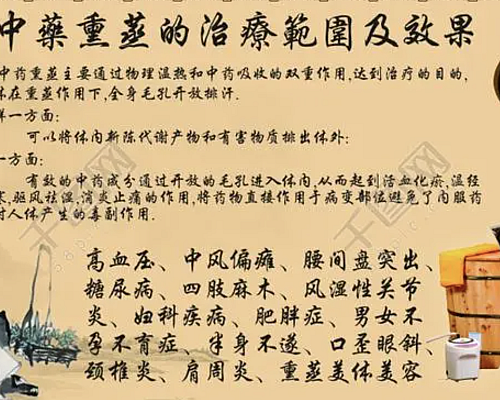 中藥熏蒸的治療範圍及效果
中药熏蒸主要通过物理温热和中药吸收的双重作用,达到治疗的目的,
体在熏蒸作用下,全身毛孔开放排汗.
一方面:
可以将体内新陈代谢产物和有害物质排出体外:
一方面:
有效的中药成分通过开放的毛孔进入体内,从而起到活血化瘀,温经
寒,驱风祛湿,消炎止痛的作用,将药物直接作用于病变部位避免了内服药
对人体产生的毒副作用.
高血压、中风偏瘫、腰间盘突出、
糖尿病、四肢麻木、风湿性关节
炎、妇科疾病、肥胖症、男女不
孕不育症、半身不遂、口歪眼斜、
颈椎炎、肩周炎、熏蒸美体美容